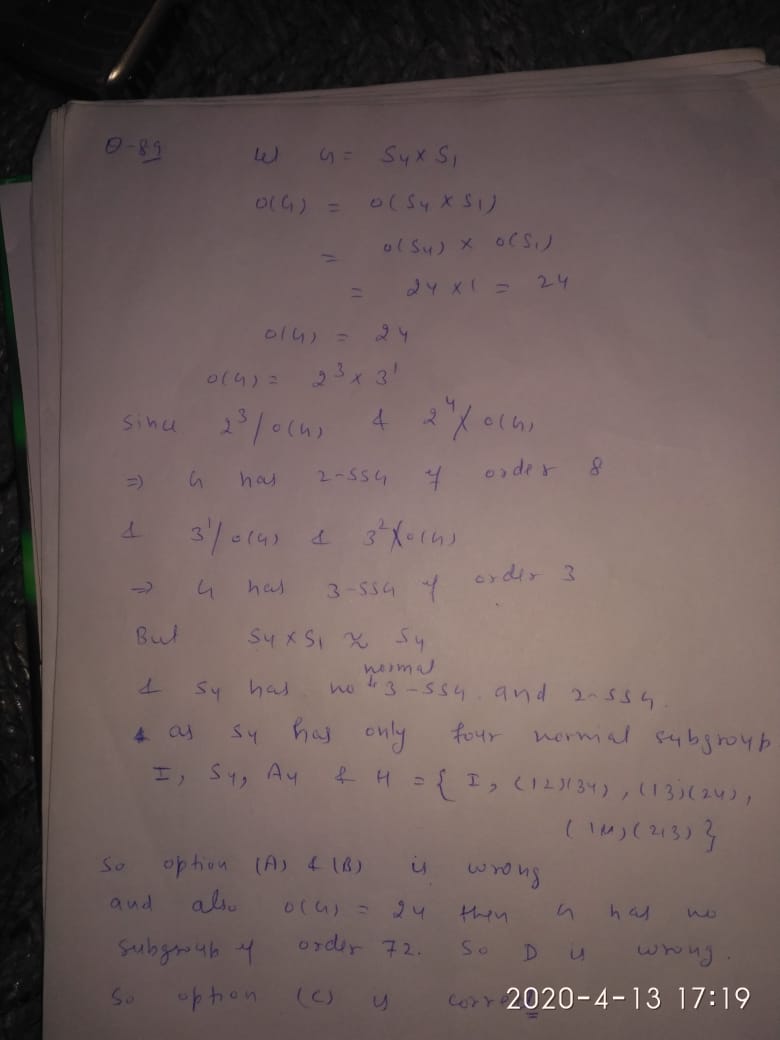 Q-89 Let G = S4 × S1
o(G) = o(S4 × S1)
= o(S4) × o(S1)
= 24 × 1 = 24
o(G) = 24
o(G) = 2³ × 3¹
Since 2³/o(G) & 2⁴∤o(G)
⇒ G has 2-SSG of order 8
& 3¹/o(G) & 3²∤o(G)
⇒ G has 3-SSG of order 3
But S4 × S1 ≈ S4
& S4 has no normal 3-SSG and 2-SSG.
as S4 has only four normal subgroup
I, S4, A4 & H = { I, (12)(34), (13)(24),
(14)(23) }
So option (A) & (B) is wrong
and also o(G) = 24 then G has no
subgroup of order 72. So D is wrong.
So option (C) is
2020-4-13 17:19